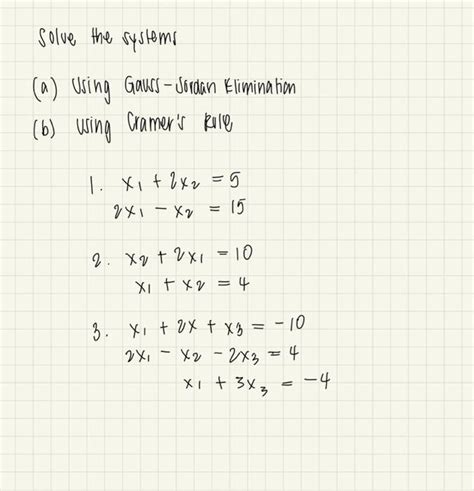 Solve the systems
(a) Using Gauss-Jordan Elimination
(b) Using Cramer's Rule
1. x₁ + 2x₂ = 5
2x₁ - x₂ = 15
2. x₂ + 2x₁ = 10
x₁ + x₂ = 4
3. x₁ + 2x + x₃ = -10
2x₁ - x₂ - 2x₃ = 4
x₁ + 3x₃ = -4